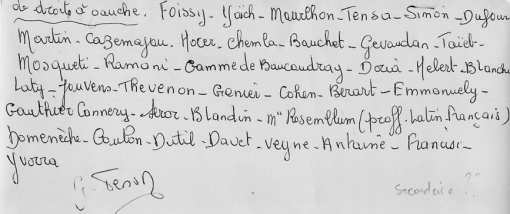 de droite à gauche. Foissy - Yaïch - Mourlhon - Tensa - Simon - Dufour
Martin - Cazemajou. Hocer. Chemla - Bauchet - Gevaudan - Taïeb -
Mosqueti - Ramoni - Gamme de Baucaudray - Doria - Hebert - Blanche
Laty - Jouvens - Thevenon - Geniei - Cohen - Berart - Emmanuely -
Gauthier Connery - Blandin - Mlle Rosemblum (proff. Latin français)
Domenèche - Coulon - Dutil - Davet - Veyne - Antoine - Francisi -
Yvorra
G. Tenson
Secondaire ??